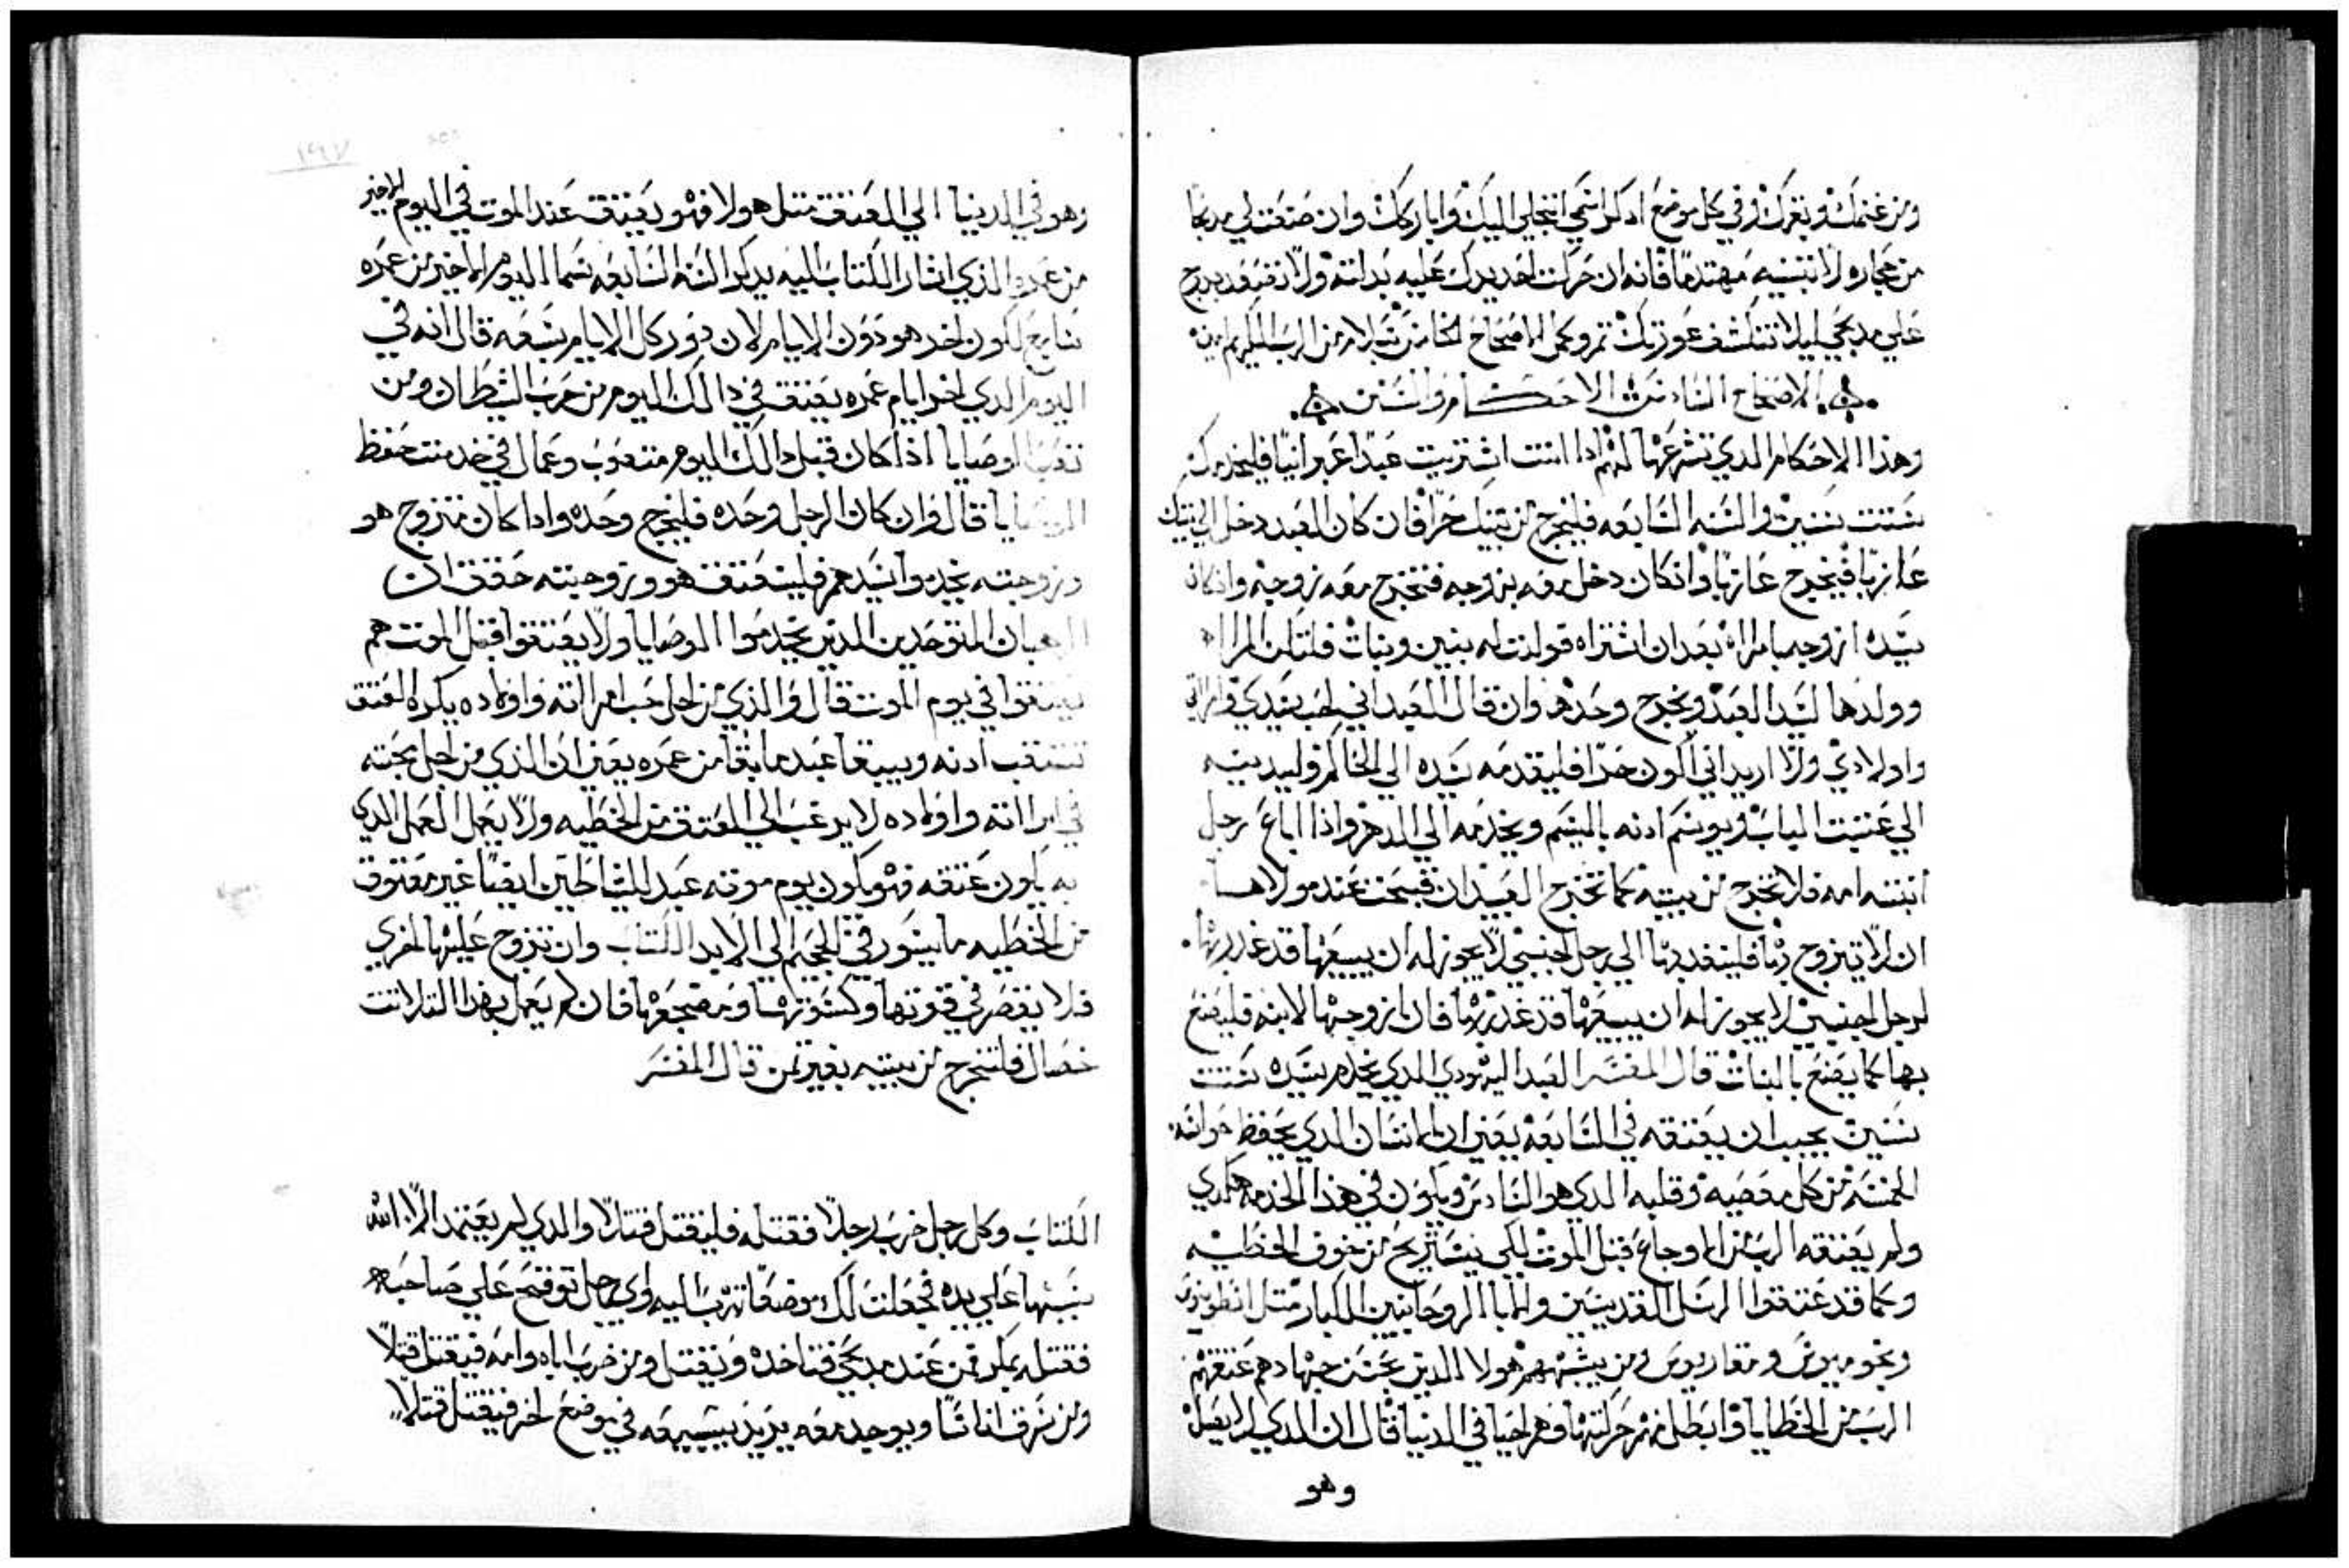 ومن غنمك وبقرك وفي كل موضع ادكر اسمي اتجلي اليك واباركك وان صنعت لي مدبحا
من حجاره لا تبنيه مهندما فانه ان حركت حديدك عليه بدلته ولا تصعد بدرج
علي مدبحي ليلا تنكشف عورتك تم وكمل الاصحاح الخامس بسلام من الرب الكريم امين
الاصحاح السادس الاحكام والسنن
وهذا الاحكام الدي تشرعها لهم ادا انت اشتريت عبدا عبرانيا فليخدمك
ستت سنين والسنه السابعه فليخرج من بيتك حرا فان كان العبد دخل الي بيتك
عازبا فيخرج عازبا وان كان دخل معه بزوجه فتخرج معه زوجته وان كان
سيده ازوجه بامراه بعد ان اشتراه فولدت له بنين وبنات فلتكن المراه
وولدها لسيد العبد ويخرج وحده وان قال العبد اني احب سيدي وامراتي
واولادي ولا اريد اني اكون حرا فليقدمه سيده الي الحاكم وليدنيه
الي عتبت الباب ويوسم ادنه بالميسم ويخدمه الي الدهر واذا اباع رجل
ابنته امه فلا تخرج من بيته كما تخرج العبيد ان قبحت عند مولاها
ان لا يتزوج بها فليفديها الي رجل اجنبي لا يجوز له ان يبيعها قد غدر بها
لرجل اجنبي لا يجوز له ان يبيعها قد غدر بها فان ازوجها لابنه فليصنع
بها كما يصنع بالبنات قال المفسر العبد اليهودي الدي يخدم سيده ستت
سنين يجب ان يعتقه في السابعه يعني ان الانسان الدي يحفظ حواسه
الخمسه من كل معصيه وقلبه الدي هو السادس ويكون في هذا الخدمه هكدي
ولم يعتقه الرب من الاوجاع قبل الموت لكي يستريح من خوف الخطيه
وكما قد عتقوا الرسل القديسين والابا الروحانيين الكبار متل انطونيوس
ونحوميوس ومقاريوس ومن يشبههم هولا الدين بحسن جهادهم عتقهم
الرب من الخطايا وابطل منهم حركتها وهم احيا في الدنيا قال ان الدي لا يصل
وهو
وهو في الدنيا الي العتق متل هولا فهو يعتق عند الموت في اليوم الاخير
من عمره الذي اشار الكتاب اليه بدكر السنه السابعه نسما اليوم الاخير من عمره
سابع لكون احد هو دون الايام لان دور كل الايام سبعه قال انه في
اليوم الدي اخر ايام عمره يعتق في دالك اليوم من حرب الشيطان ومن
تعب الوصايا اذا كان قبل دالك اليوم متعوب وعمال في خدمت حفظ
الوصايا قال وان كان الرجل وحده فليخرج وحده وادا كان متزوج هو
وزوجته يخدموا سيدهم فليعتق هو وزوجته حقق ان
الرهبان المتوحدين الدين يخدموا الوصايا ولا يعتقوا قبل الموت هم
يعتقوا في يوم الموت قال والذي من اجل حب امراته واولاده يكره العتق
تتقب ادنه ويبقا عبد ما بقا من عمره يعني ان الذي من اجل محبته
في امراته واولاده لا يرغب الي العتق من الخطيه ولا يعمل العمل الدي
به يكون عتقه فهو يكون يوم موته عبد للشياطين ايضا غير معتوق
من الخطيه مايسور في الجحيم الي الابد الكتاب وان تزوج عليها اخري
فلا يقصر في قوتها وكسوتها ومضجعها فان لم يعمل بهدا التلاتت
خصال فلتخرج من بيته بغير تمن قال المفسر
الكتاب وكل رجل ضرب رجلا فقتله فليقتل قتلا والدي لم يعتمد الا الله
سببها علي يده فجعلت لك موضعا تهرب اليه واي رجل توقح علي صاحبه
فقتله بمكر فمن عند مدبحي فتاخده ويقتل ومن ضرب اباه وامه فيقتل قتلا
ومن سرق انسانا ويوجد معه يريد يبيعه في موضع اخر فيقتل قتلا